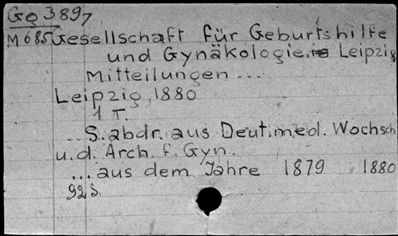 Gg 3897
M 685 Gesellschaft für Geburtshilfe
und Gynäkologie Leipzig
Mitteilungen ...
Leipzig, 1880
1 T.
... S. abdr. aus Deut. med. Wochsch
u. d. Arch. f. Gyn.
... aus dem Jahre 1879 1880
92 S.